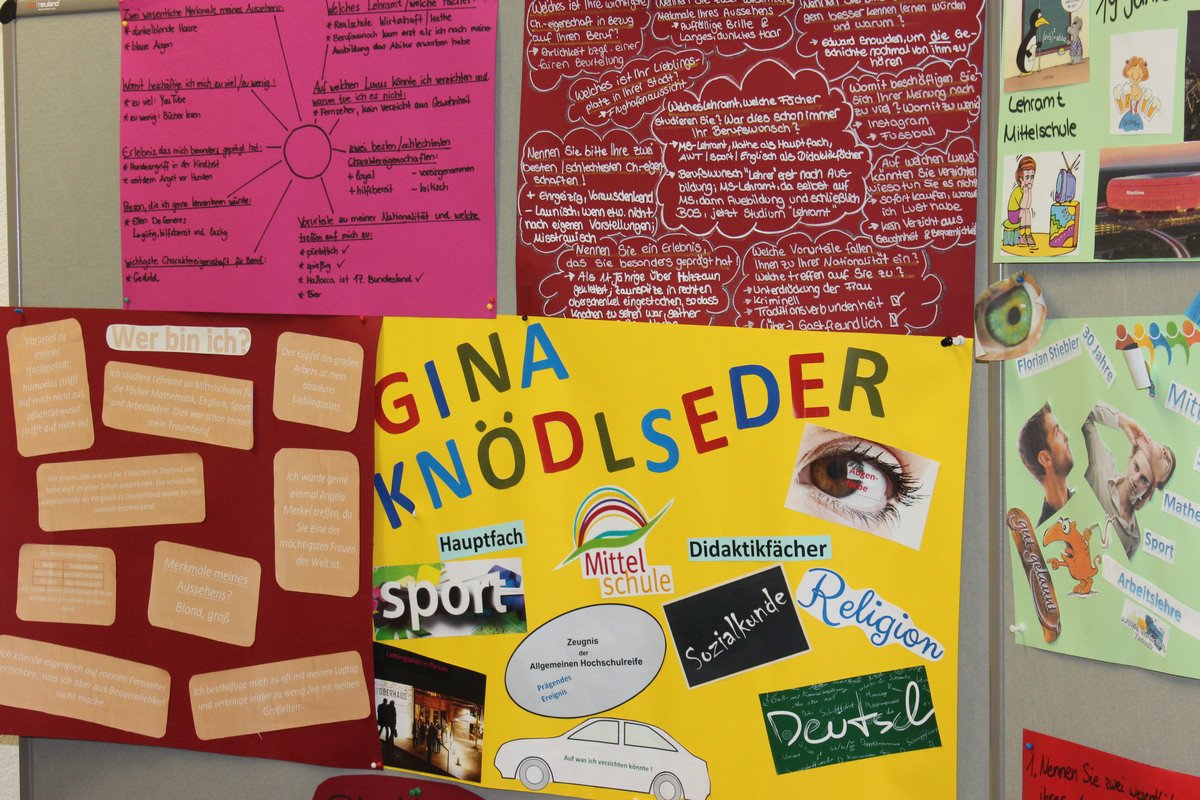 neuland
Zwei wesentliche Merkmale meines Aussehens:
* dunkelblonde Haare
* blaue Augen
Womit beschäftige ich mich zu viel/zu wenig:
* zu viel: YouTube
* zu wenig: Bücher lesen
Erlebnis das mich besonders geprägt hat:
* Hundeangriff in der Kindheit
* seitdem Angst vor Hunden
Person, die ich gerne kennenlernen würde:
* Ellen DeGeneres
Witzig, hilfsbereit und lustig
wichtigste Charaktereigenschaft für Beruf:
* Geduld
Welches Lehramt/welche Fächer:
* Realschule Wirtschaft/Mathe
* Berufswunsch kam erst als ich nach meiner
Ausbildung das Abitur erworben habe
Auf welchen Luxus könnte ich verzichten und
warum tue ich es nicht:
* Fernseher, kein Verzicht aus Gewohnheit
zwei besten/schlechtesten
Charaktereigenschaften:
+ loyal - voreingenommen
+ hilfsbereit - kritisch
Vorurteile zu meiner Nationalität und welche
treffen auf mich zu:
* pünktlich ✓
* spießig ✓
* Mallorca ist 17. Bundesland ✓
* Bier
Welches ist Ihre wichtigste
Ch-eigenschaft in Bezug
auf Ihren Beruf?
→ Ehrlichkeit bzgl. einer
fairen Beurteilung
Merkmale Ihres Aussehens
→ Auffällige Brille &
Langes, dunkles Haar
gern besser kennen lernen würden
und warum?
→ Eduard Snowden, um die Ge-
schichte nochmal von ihm zu
hören
Welches ist Ihr Lieblings-
platz in Ihrer Stadt?
→ Flughafenaussicht
Welches Lehramt, welche Fächer
studieren Sie? War dies schon immer
Ihr Berufswunsch?
→ MS-Lehramt, Mathe als Hauptfach,
AWT/Sport/Englisch als Didaktikfächer
→ Berufswunsch "Lehrer" erst nach Aus-
bildung; MS-Lehramt, da selbst auf
MS, dann Ausbildung und schließlich
BOS, jetzt Studium "Lehramt"
Womit beschäftigen Sie
sich Ihrer Meinung nach
zu viel? Womit zu wenig
→ Instagram
→ Fussball
Nennen Sie bitte Ihre zwei
besten/schlechtesten Ch-eigen-
schaften!
+ Ehrgeizig, Vorausschauend
- Launisch, wenn etw. nicht
nach eigenen Vorstellungen;
Misstrauisch
Auf welchen Luxus
könnten Sie verzichten
wieso tun Sie es nicht
→ sofort kaufen, worauf
ich Lust habe
→ kein Verzicht aus
Gewohnheit & Bequemlichkeit
Nennen Sie ein Erlebnis,
das Sie besonders geprägt hat!
→ Als 11-Jährige über Holzzaun
geklettert; Zaunspitze in rechten
Oberschenkel eingestochen, sodass
Knochen zu sehen war, seither
Welche Vorurteile fallen
Ihnen zu Ihrer Nationalität ein?
Welche treffen auf Sie zu?
→ Unterdrückung der Frau
→ Kriminell
→ Traditionsverbundenheit
→ (über-) Gastfreundlich
19 Jahre
Lehramt
Mittelschule
Wer bin ich?
Vorurteil zu
meiner
Nationalität:
humorlos (trifft
auf mich nicht zu),
pflichtbewusst
(trifft auf mich zu)
Ich studiere Lehramt an Mittelschulen für
die Fächer Mathematik, Englisch, Sport
und Arbeitslehre. Dies war schon immer
mein Traumberuf.
Der Gipfel des großen
Arbers ist mein
absoluter
Lieblingsplatz.
Vor einem Jahr war ich für 5 Wochen in Thailand und
habe dort an einer Schule unterrichtet. Die schulischen
Unterschiede im Vergleich zu Deutschland waren für mich
ziemlich erschreckend.
Ich würde gerne
einmal Angela
Merkel treffen, da
Sie eine der
mächtigsten Frauen
der Welt ist.
Merkmale meines
Aussehens?
Blond, groß
Ich könnte eigentlich auf meinen Fernseher
verzichten, was ich aber aus Bequemlichkeit
nicht mache.
Ich beschäftige mich zu oft mit meinem Laptop
und verbringe leider zu wenig Zeit mit meinen
Großeltern.
GINA
KNÖDLSEDER
Augen-
farbe
Hauptfach
Mittel
schule
Didaktikfächer
sport
Sozialkunde
Religion
Zeugnis
der
Allgemeinen Hochschulreife
Prägendes
Ereignis
Lieblingsplatz in Passau
OBERHAUS
Deutsch
Auf was ich verzichten könnte !
Florian Stiebler
30 Jahre
Mit
Mathe
Sport
gut gelaunt
Arbeitslehre
1. Nennen Sie zwei wesentliche